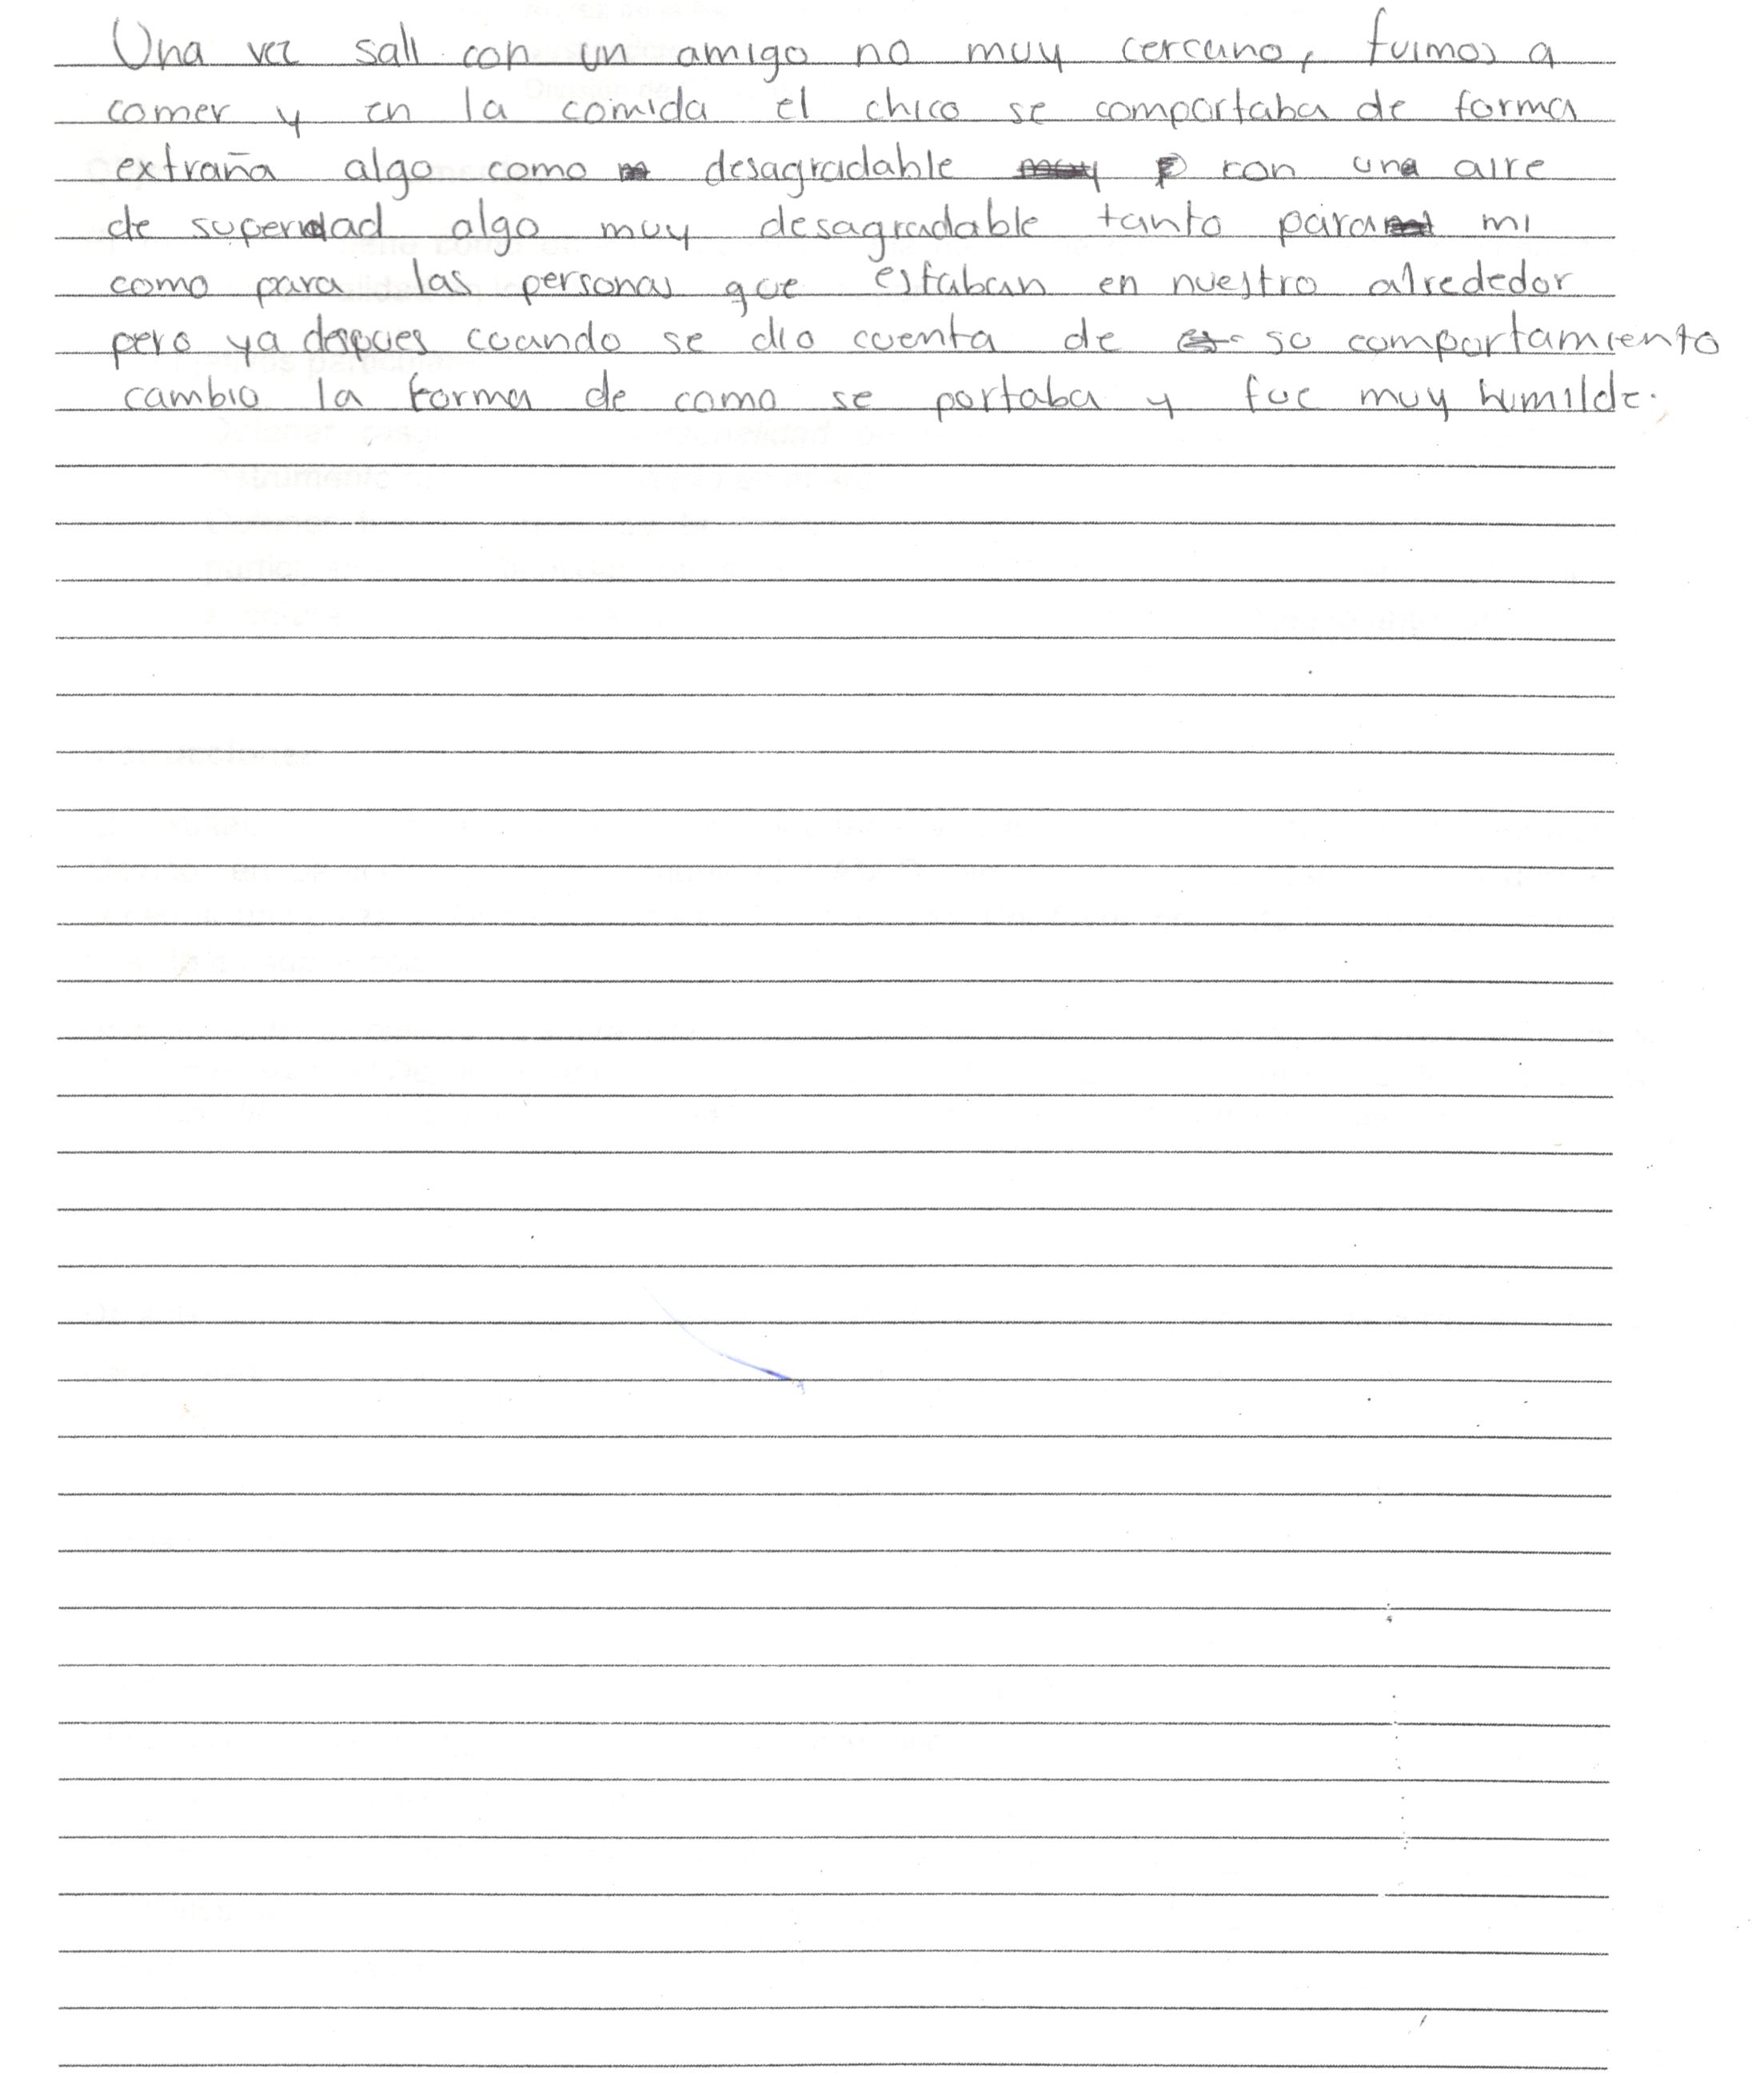 Una vez sali con un amigo no muy cercano, fuimos a
comer y en la comida el chico se comportaba de forma
extraña algo como desagradable con una aire
de superidad algo muy desagradable tanto para mi
como para las personas que estaban en nuestro alrededor
pero ya despues cuando se dio cuenta de su comportamiento
cambio la forma de como se portaba y fue muy humilde.